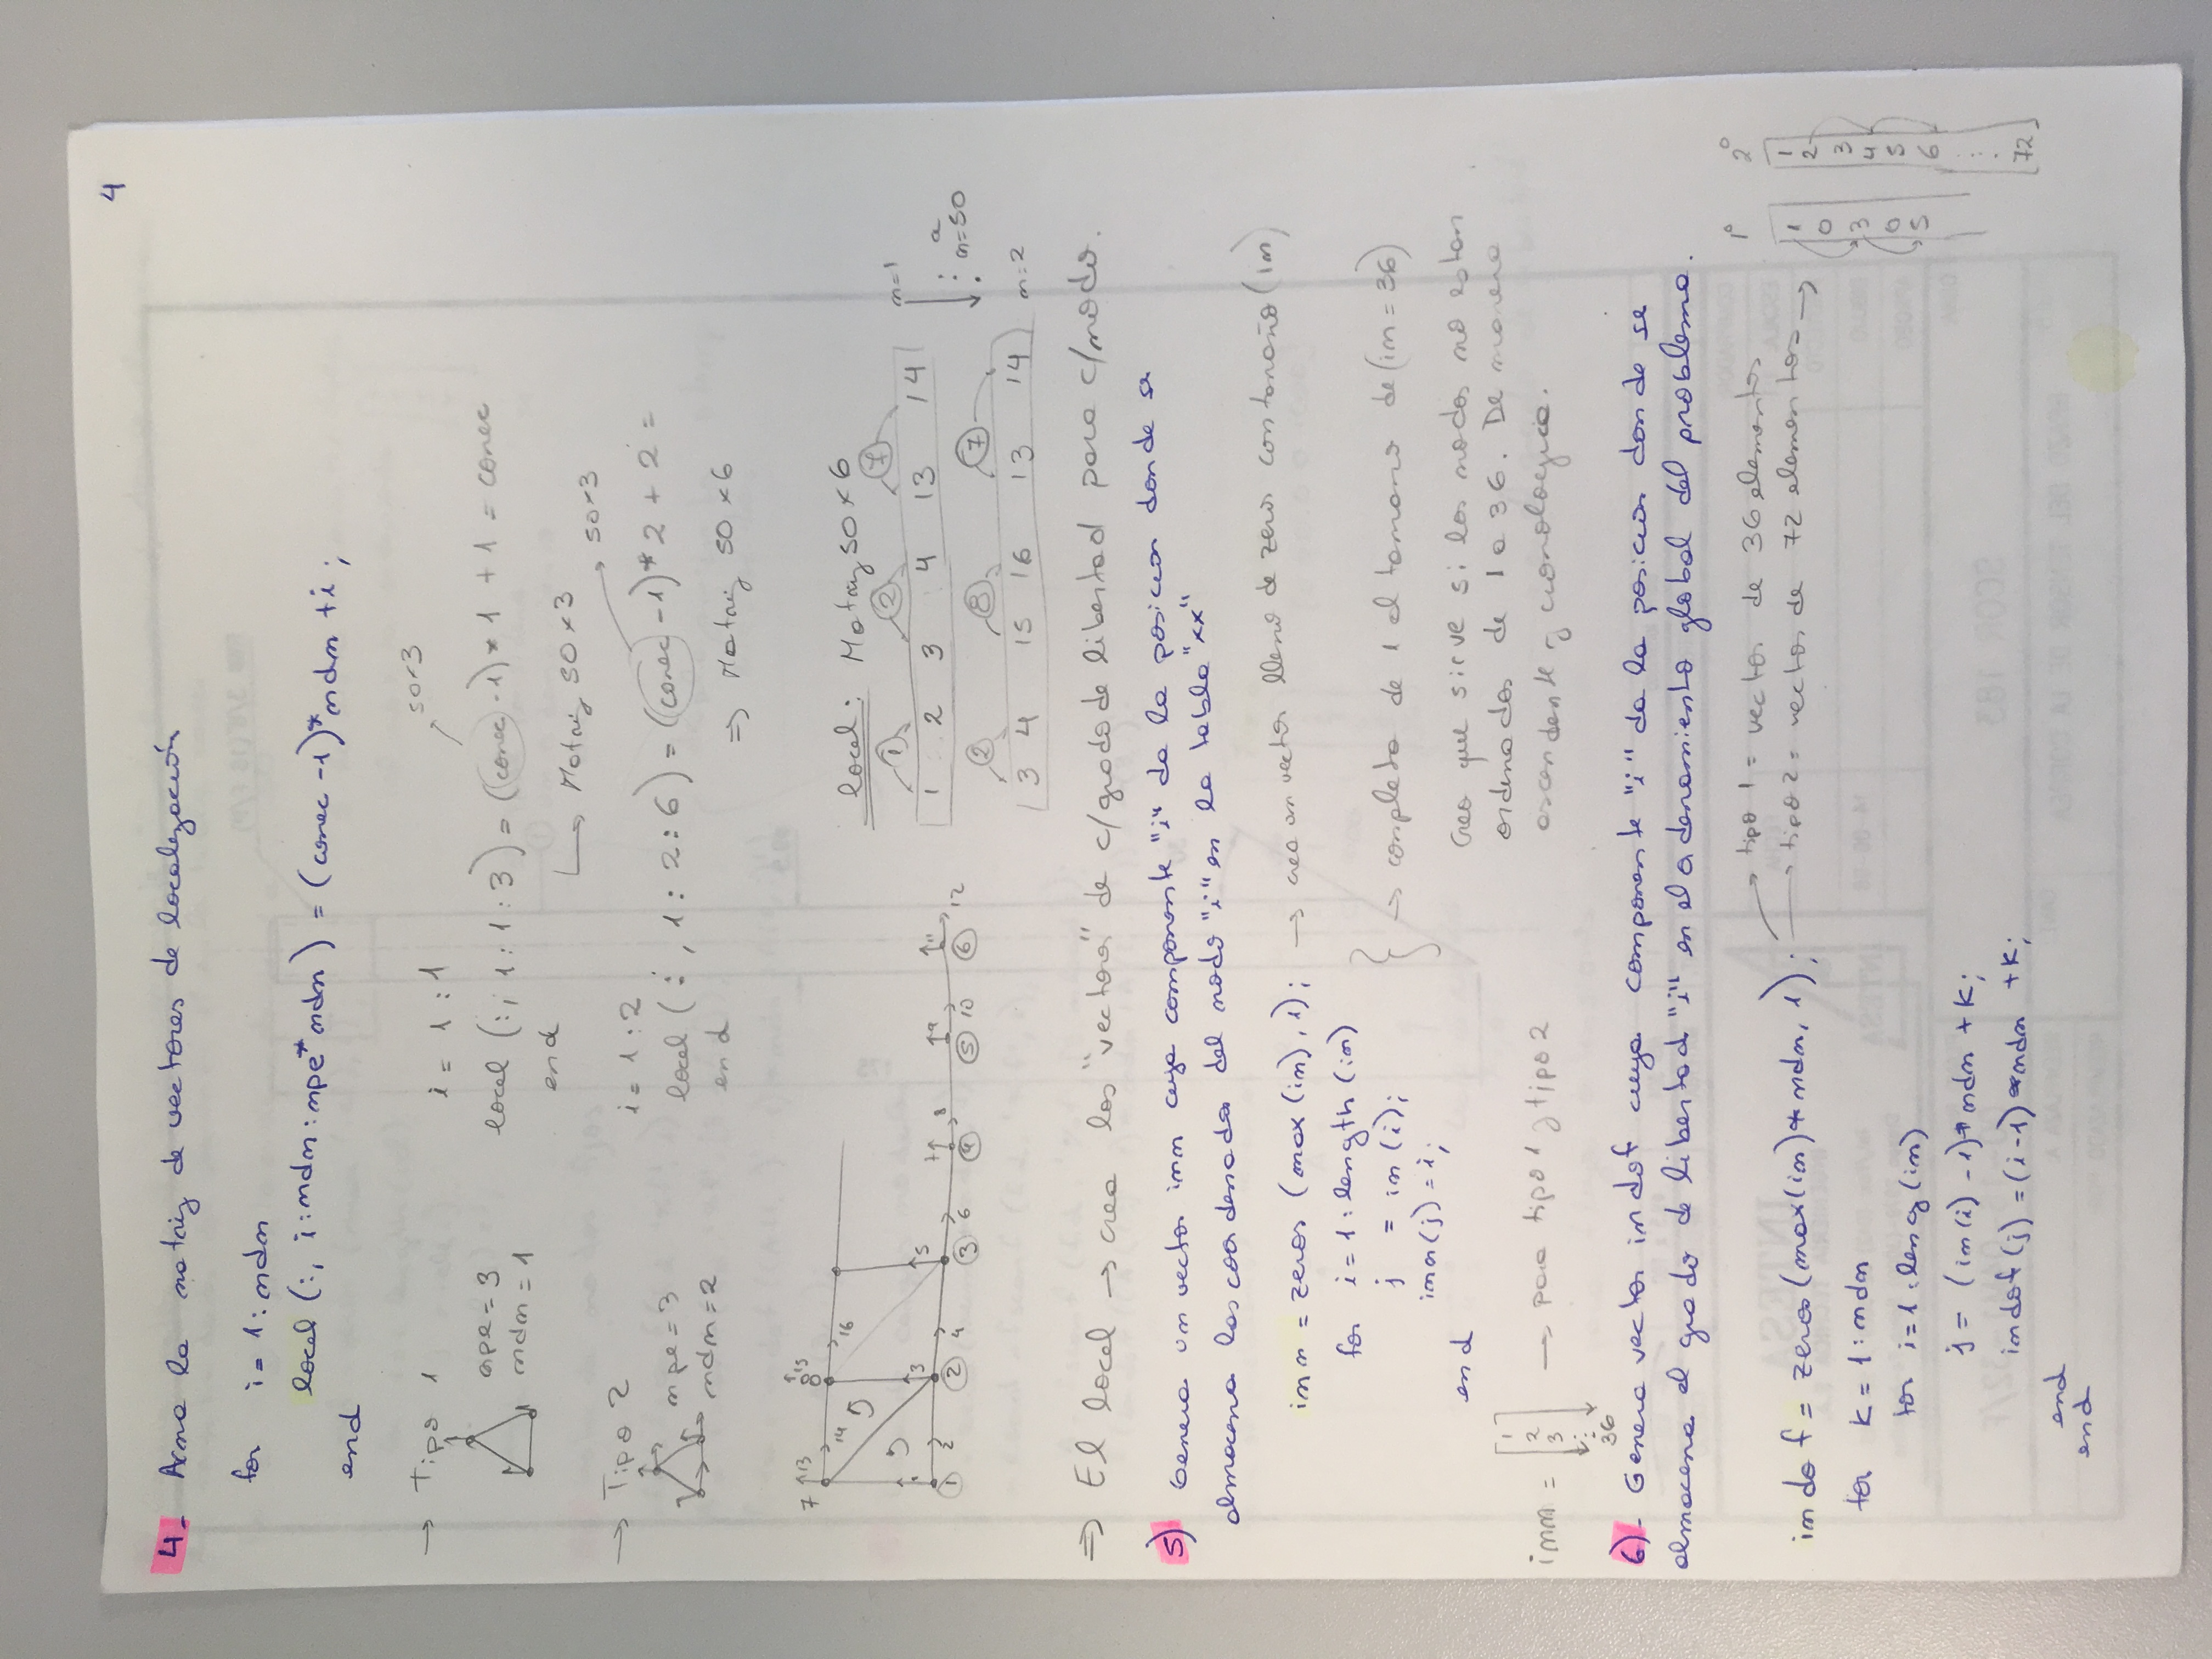 4
4- Arma la matriz de vectores de localización
for i = 1 : ndn
local (:, i:ndn:npe*ndn) = (conec -1)*ndn +i ;
end
→ Tipo 1
npe = 3
ndn = 1
i = 1 : 1
50×3
local (:, 1 : 1 : 3) = (conec -1) * 1 + 1 = conec
end
→ Matriz 50 × 3
→ Tipo 2
npe = 3
ndn = 2
i = 1 : 2
50×3
local ( : , 1 : 2 : 6 ) = (conec -1)* 2 + 2 =
end
⇒ Matriz 50 × 6
7 13 14 8 15 16
1 2 3 4 5 6 7 8 9 10 11 12
1 2 3 4 5 6
local: Matriz 50 × 6
1 2 7
1 2 3 4 13 14
n=1
a
n=50
2 8 7
3 4 15 16 13 14
n=2
⇒ El local → crea los "vectores" de c/grado de libertad para c/nodo.
5) Genera un vector inn cuya componente "i" da la posicion donde se
almacena las coordenadas del nodo "i" en la tabla "xx"
inn = zeros (max (in), 1); → crea un vector lleno de zeros con tamaño (in)
for i = 1 : length (in)
j = in (i);
inn(j) = i;
end
→ completa de 1 al tamano de (in = 36)
Creo que sirve si los nodos no estan
ordenados de 1 a 36. De manera
ascendente y cronologica.
inn =
1
2
3
⋮
36
→ para tipo 1 y tipo 2
6)- Genera vector indof cuya componente "i" da la posicion donde se
almacena el grado de libertad "i" en el ordenamiento global del problema.
indof = zeros (max(in)*ndn, 1);
→ tipo 1 = vector de 36 elementos
→ tipo 2 = vector de 72 elementos →
for k = 1 : ndn
for i=1 : leng (in)
j = (in(i) - 1)* ndn + k;
indof (j) = (i-1) *ndn + k;
end
end
1°
1
0
3
0
5
2°
1
2
3
4
5
6
⋮
72